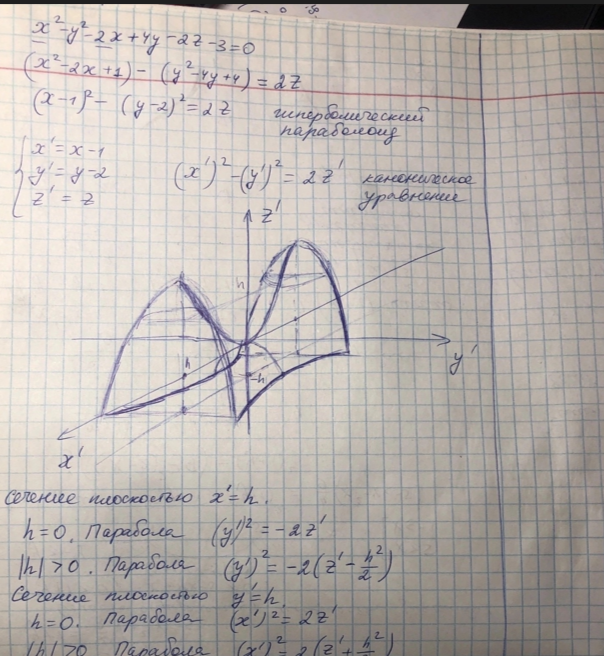 x²-y²-2x+4y-2z-3=0
(x²-2x+1) - (y²-4y+4) = 2z
(x-1)² - (y-2)² = 2z гиперболический
параболоид
x' = x-1
y' = y-2 (x')² - (y')² = 2z' каноническое
z' = z уравнение
z'
h
y'
h
-h
x'
Сечение плоскостью x'=h.
h=0. Парабола (y')² = -2z'
|h|>0. Парабола (y')² = -2(z' - h²/2)
Сечение плоскостью y'=h.
h=0. Парабола (x')² = 2z'
|h|>0 Парабола (x')² = 2(z' + h²/